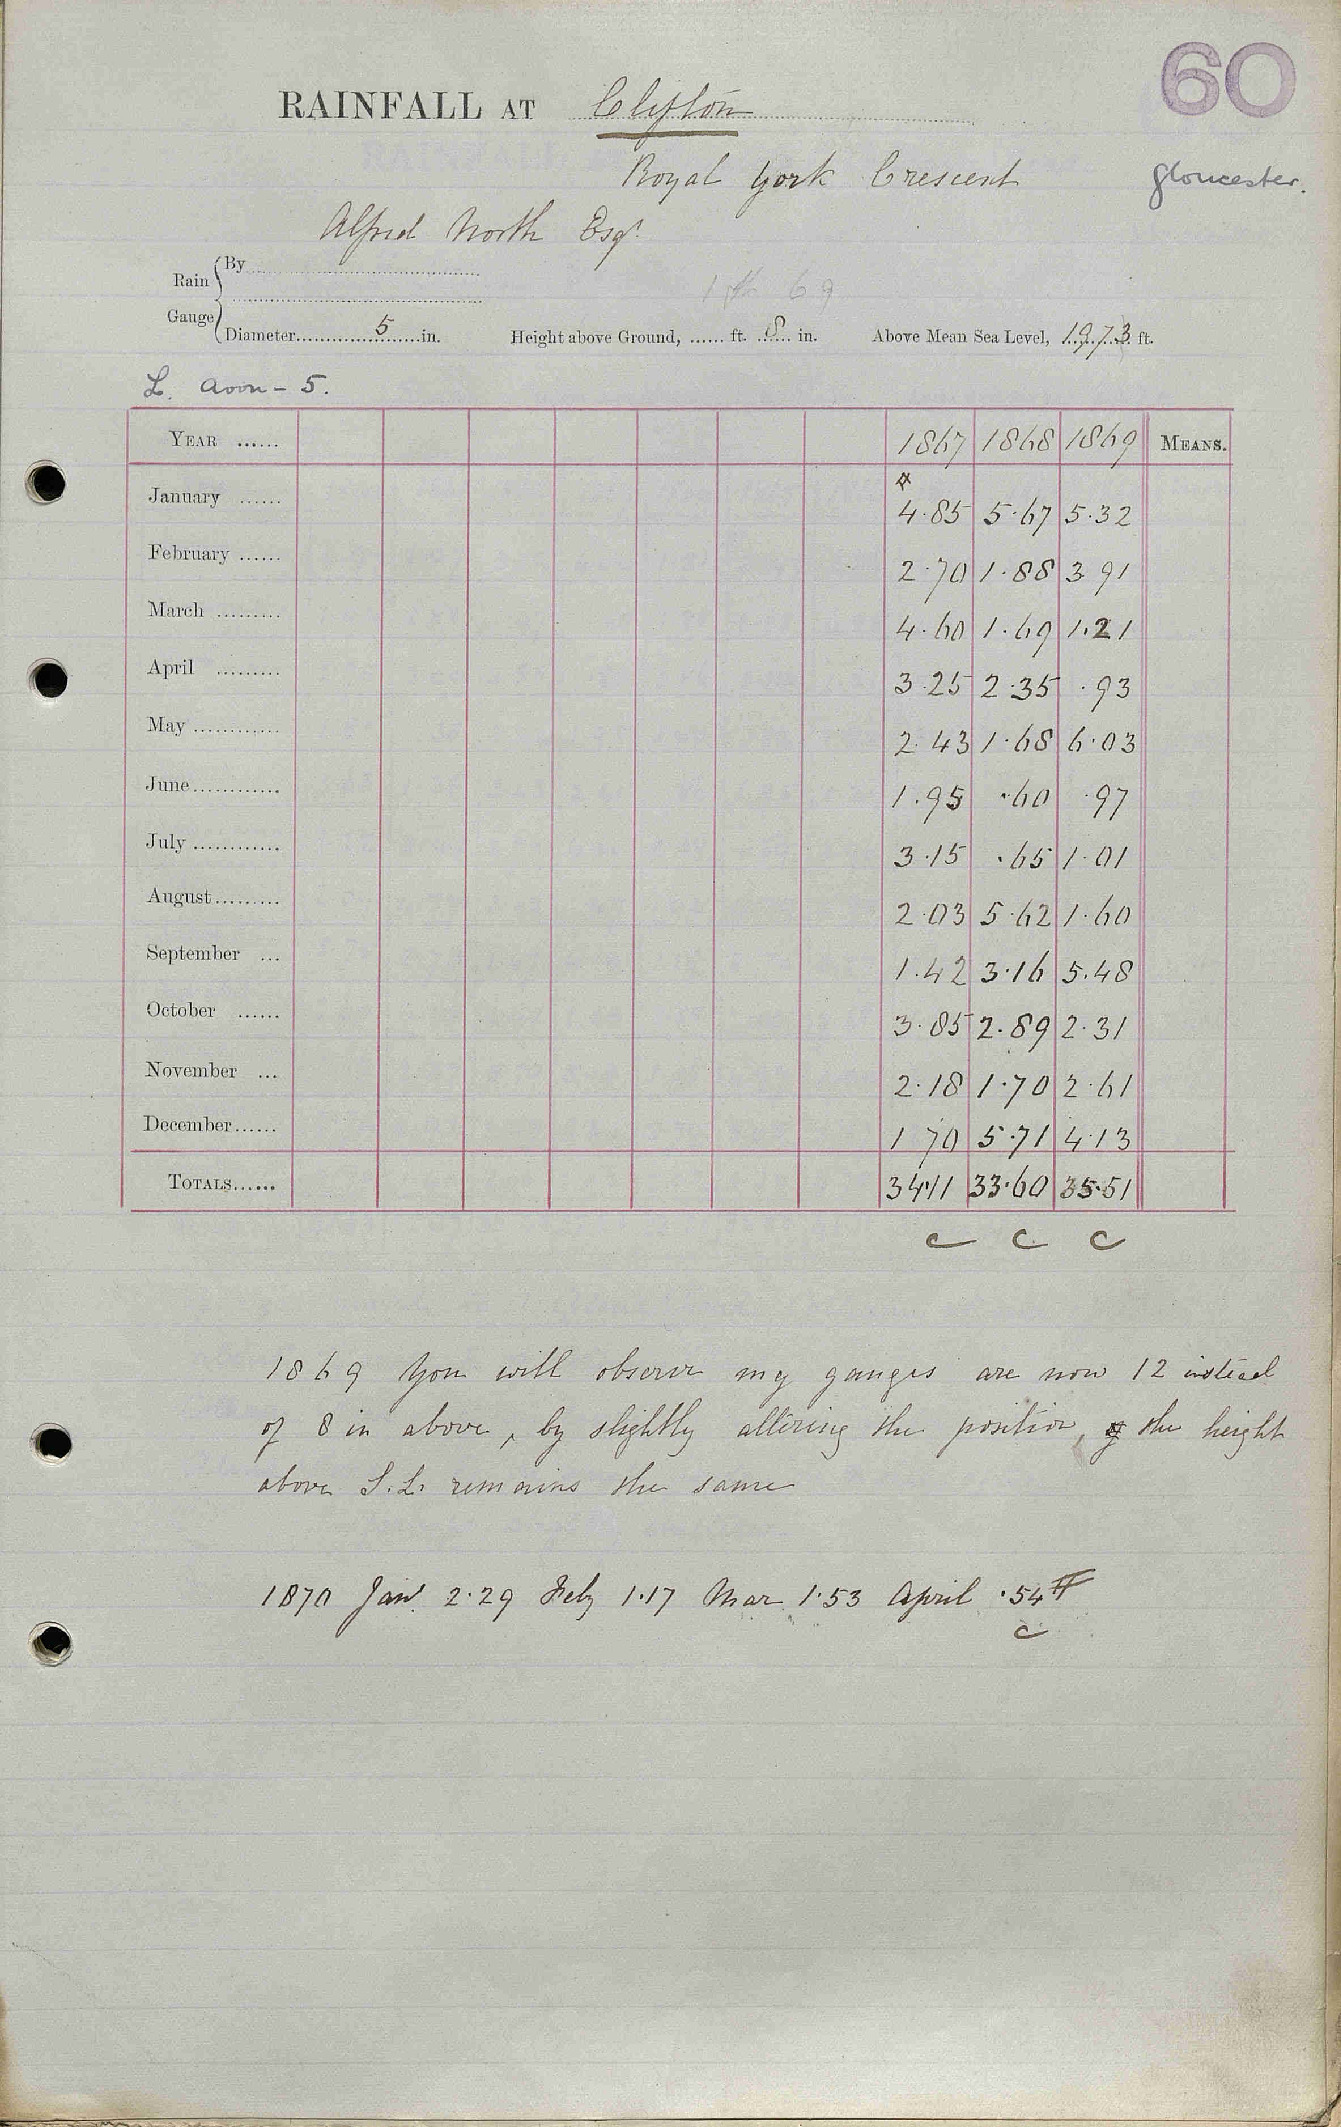 60
RAINFALL AT Clifton
Royal York Crescent
Gloucester.
Alfred North Esqr.
Rain Gauge
By
Diameter 5 in. Height above Ground, ...... ft. 8 in. Above Mean Sea Level, 197.3 ft.
L. Avon - 5.
YEAR ...... 1867 1868 1869 MEANS.
January ...... 4.85 5.67 5.32
February ...... 2.70 1.88 3.91
March ......... 4.60 1.69 1.21
April ......... 3.25 2.35 .93
May ............ 2.43 1.68 6.03
June ............ 1.95 .60 .97
July ............ 3.15 .65 1.01
August ......... 2.03 5.62 1.60
September ... 1.42 3.16 5.48
October ...... 3.85 2.89 2.31
November ... 2.18 1.70 2.61
December ...... 1.70 5.71 4.13
TOTALS ...... 34.11 33.60 35.51
c c c
1869 You will observe my gauges are now 12 instead
of 8 in above, by slightly altering the position, the height
above S.L. remains the same
1870 Jan 2.29 Feby 1.17 Mar 1.53 April .54
c